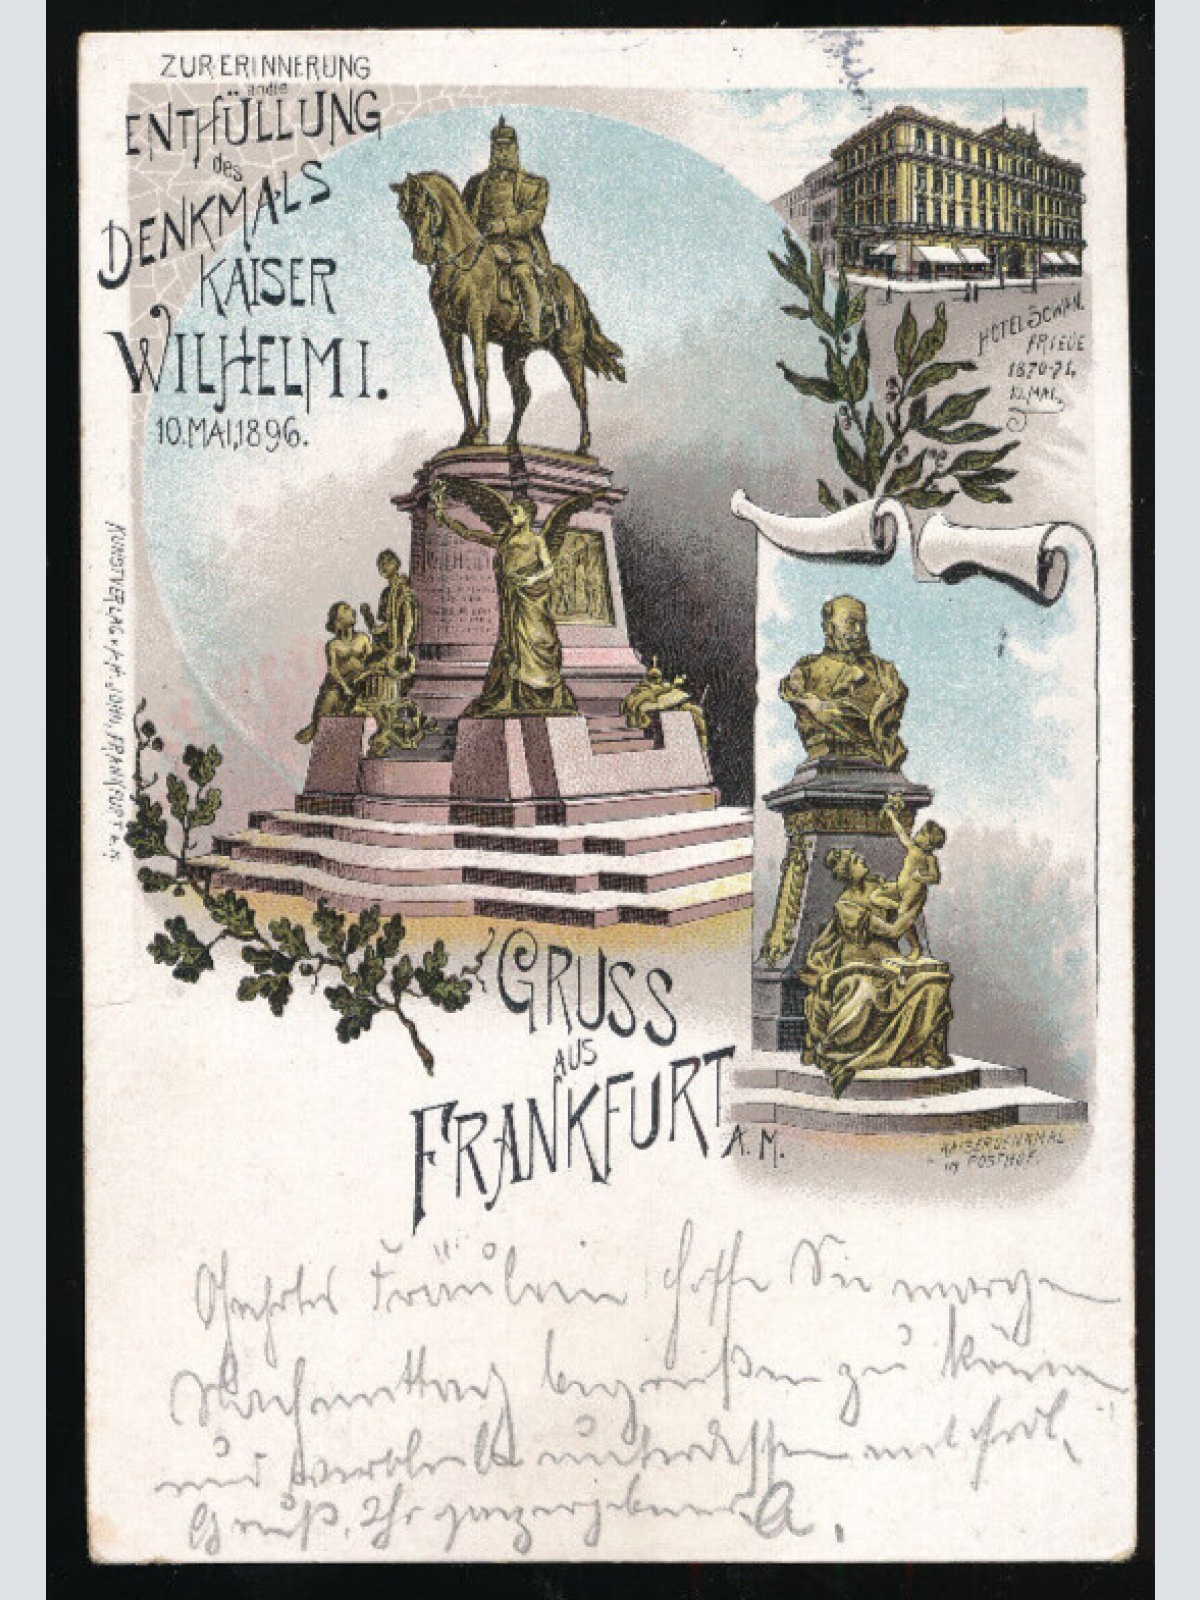 ZUR ERINNERUNG
an die
ENTHÜLLUNG
des
DENKMALS
KAISER
WILHELM I.
10. MAI, 1896.
HOTEL SCHWAN.
FRIEDE
1870-71.
10. MAI.
KUNSTVERLAG v. A. H. JOHN, FRANKFURT a. M.
GRUSS
AUS
FRANKFURT
A. M.
KAISERDENKMAL
IM POSTHOF.
Geehrtes Fräulein hoffe Sie morgen
Nachmittag begrüßen zu können
und verbleibe unterdessen mit frdl.
Gruß, Ihr ganz ergebener A.